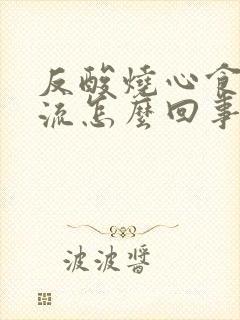 反酸燒心食
流怎麼回事
波波醬